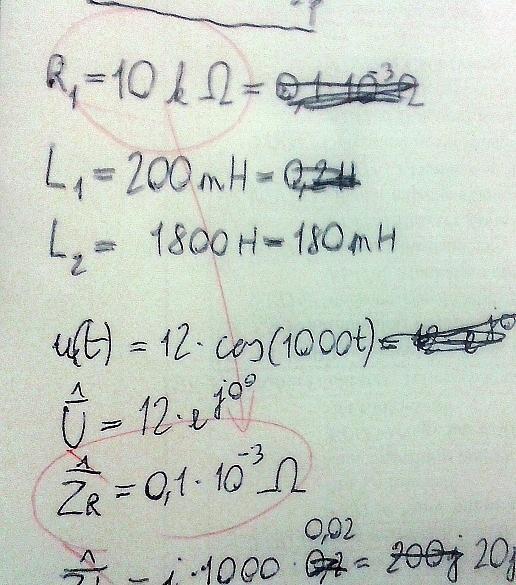 R₁ = 10 k Ω =
L₁ = 200mH =
L₂ = 1800H = 180mH
u(t) = 12 · cos(1000t) =
Û = 12 · e^j0°
Ẑ_R = 0,1 · 10⁻³ Ω
0,02
j · 1000 · = 20j